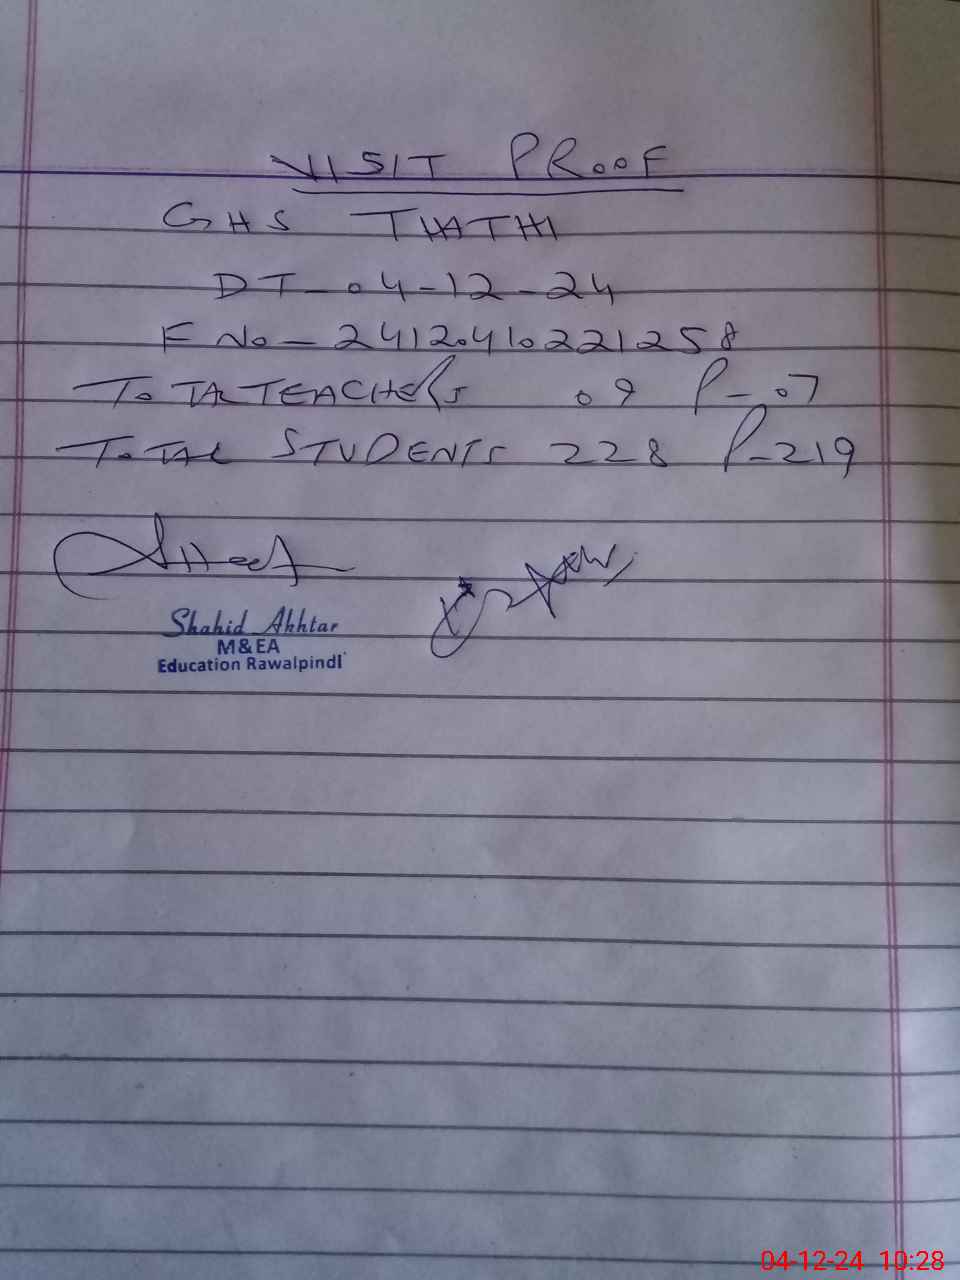 VISIT PROOF
GHS THATHI
DT - 04-12-24
F No - 24120410221258
TOTAL TEACHERS 09 P-07
TOTAL STUDENTS 228 P-219
Shahid Akhtar
M&EA
Education Rawalpindi
04-12-24 10:28